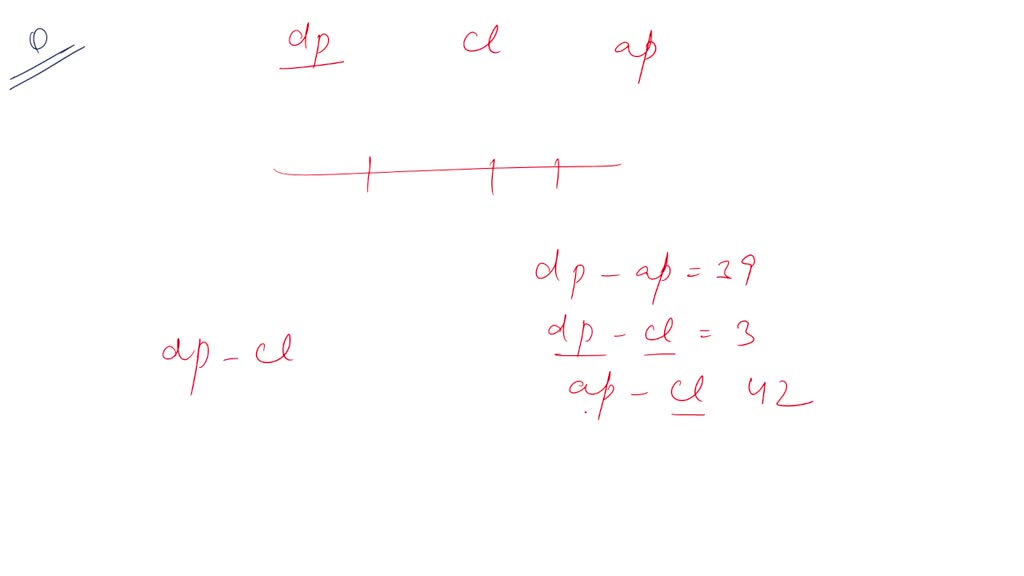 Q
dp cl ap
dp - ap = 39
dp - cl = 3
dp - cl
ap - cl 42